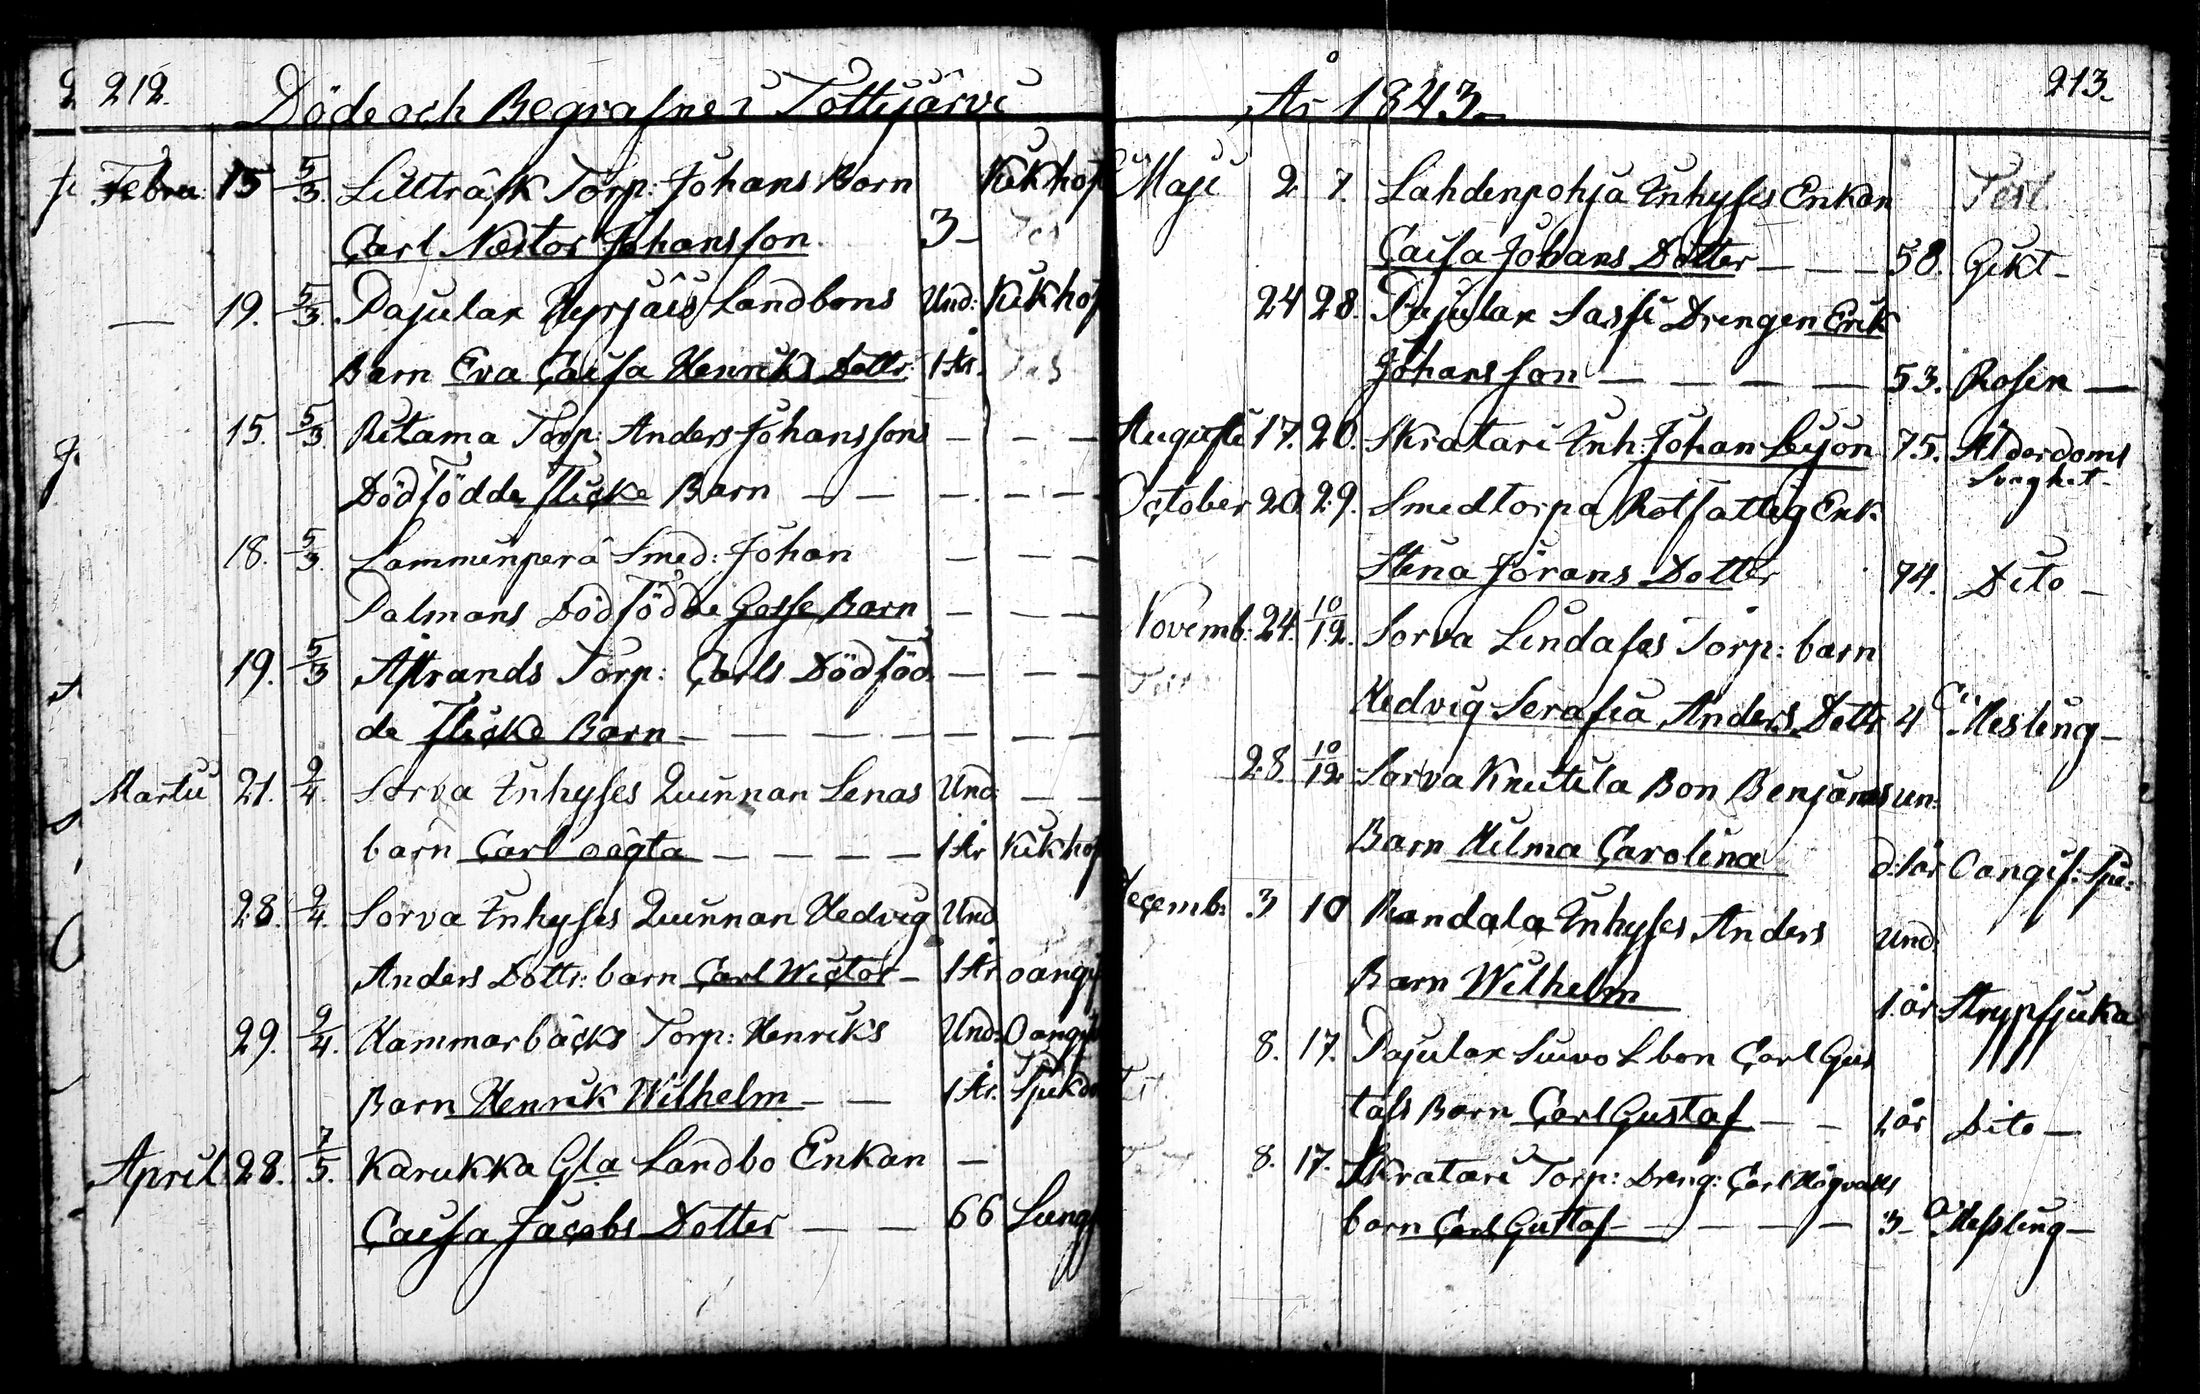 212.
Döde och Begrafne i Tottijärvi
Febru: 15 5/3. Lillträsk Torp: Johans Barn Kikhos
Carl Nestor Johansson 3 –
— 19. 5/3. Pajulax Hyrjäis Landbons Und: Kikhos
Barn Eva Caisa Henriks Dottr: 1 År.
15. 5/3 Ritama Torp: Anders Johanssons — — —
Dödfödde flicke Barn — — — — —
18. 5/3. Lamminperä Smed: Johan — — —
Palmans Dödfödde Gosse Barn — — —
19. 5/3 Åstrands Torp: Carls Dödföd — — —
de flicke Barn — — — — — — —
Martii 21. 2/4. Sorva Inhyses Quinnan Lenas Und: — —
barn Carl oägta — — — — 1 År Kikhos
28. 2/4. Sorva Inhyses Quinnan Hedvig Und
Anders Dottr: barn Carl Wictor — 1 År oangif
29. 2/4. Hammarbäcks Torp: Henriks Und: Oangif
Barn Henrik Wilhelm — — 1 År. Sjukdo
April 28. 7/5. Karukka Gla Landbo Enkan —
Caisa Jacobs Dotter — — 66 Lungs
År 1843.
213.
Maji 2 7. Lahdenpohja Inhyses Enkan
Caisa Johans Dotter — — — 58. Gikt –
24 28. Pajulax Sassi Drengen Erik
Johansson — — — — 53. Rosen —
Augusti 17. 20. Skratari Inh: Johan Leijon 75. Ålderdoms
Svaghet –
October 20 29. Smedtorpa Rotfattig Enk:
Stina Jörans Dotter 74. Dito –
Novemb: 24. 10/12. Sorva Lindases Torp: barn
Hedvig Serafia Anders Dottr 4 Messling –
28. 10/12 Sorva Knutila Bon Benjams un:
Barn Hilma Carolina d: 1 år Oangif: Sju:
Decemb: 3 10 Randala Inhyses Anders Und:
Barn Wilhelm 1. år Strypsjuka
8. 17. Pajulax Suwo Lbon Carl Gus
tafs Barn Carl Gustaf — — 1 år Dito —
8. 17. Skratari Torp: Dreng: Carl Högvalls
barn Carl Gustaf — — — — 3 – Messling –